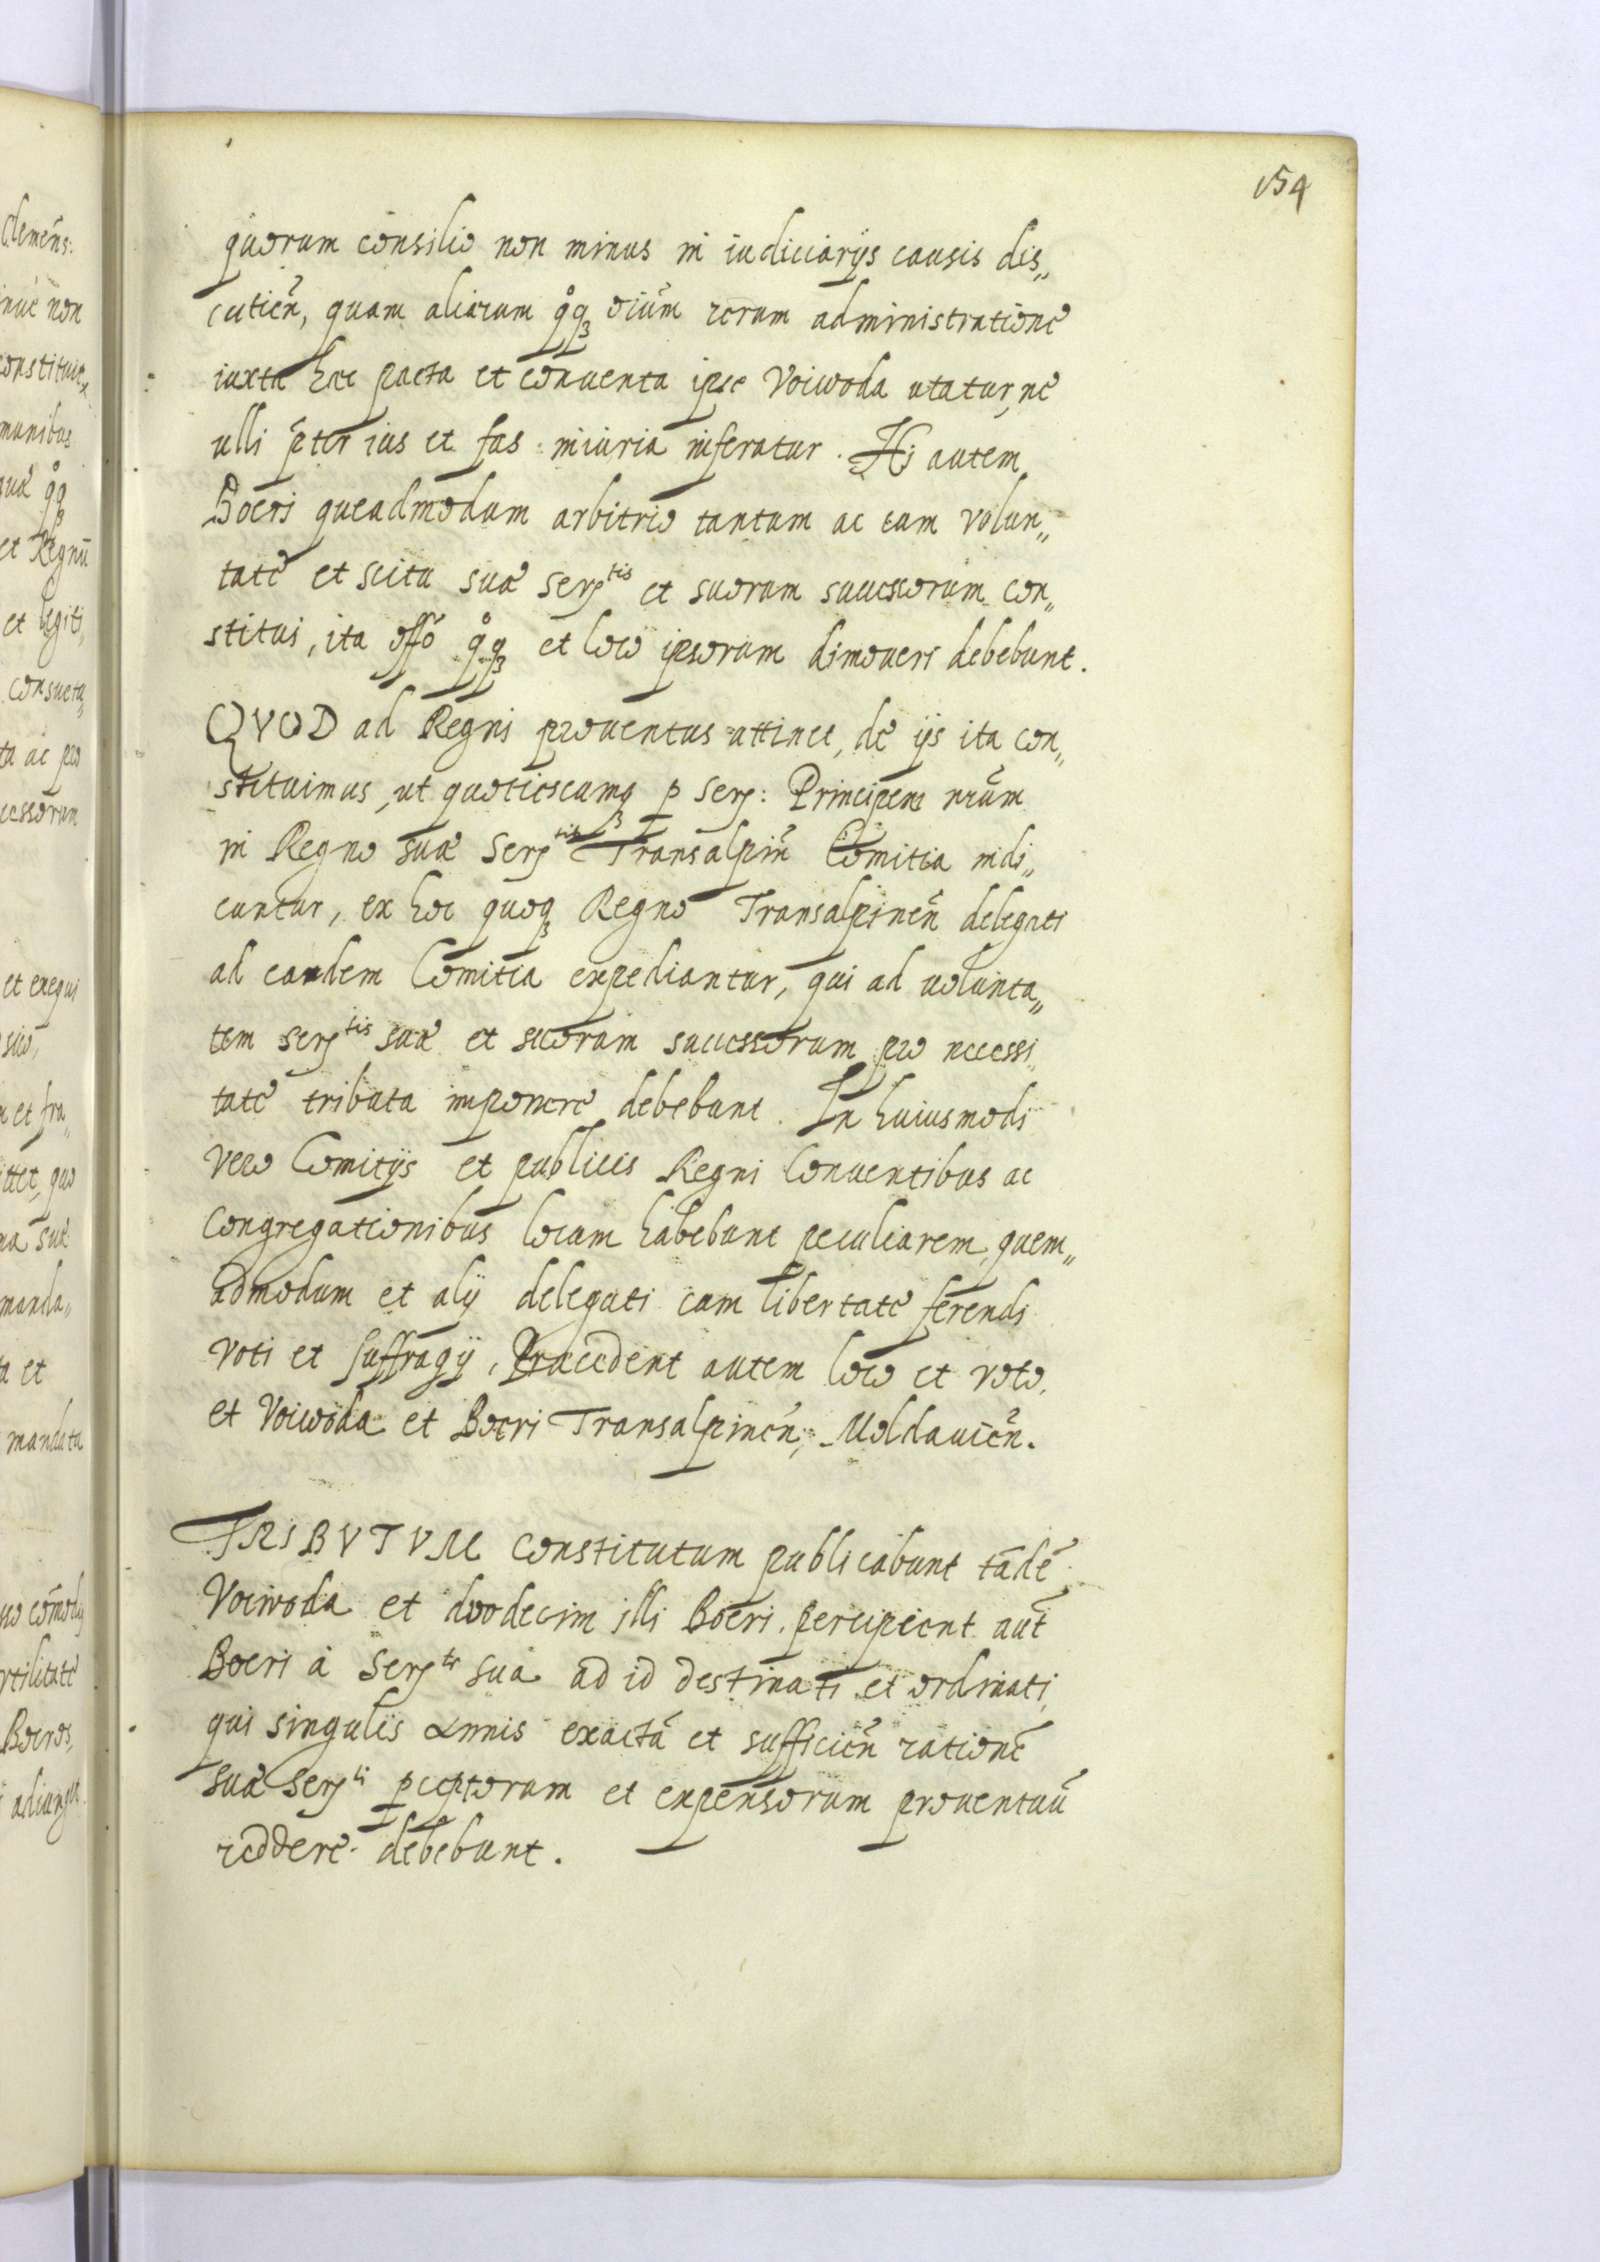 154
quorum consilio non minus in iudiciarijs causis dis„
cutieñ, quam aliarum qq₃ oium̃ rerum administratione
iuxta hæc pacta et conuenta ipse Voiwoda utatur, ne
ulli p̃ter ius et fas iniuria inferatur. Hi autem
Boeri queadmodum arbitrio tantum ac cum volun„
tate et scitu suæ Serᵗⁱˢ et suorum successorum con„
stitui, ita offo qq₃ et loco ipsorum dimoueri debebunt.
QVOD ad Regni prouentus attinet, de ijs ita con„
stituimus, ut quotiescumq₃ p Ser: Principem nrum̃
in Regno suæ Serᵗⁱˢ Transalpiñ Comitia indi„
cuntur, ex hoc quoq₃ Regno Transalpineñ delegati
ad eandem Comitia expediantur, qui ad uolunta„
tem Serᵗⁱˢ suæ et suorum successorum pro necessi„
tate tributa imponere debebunt. In huiusmodi
vero Comitijs et publicis Regni Conuentibus ac
Congregationibus locum habebunt peculiarem, quem„
admodum et alij delegati cum libertate ferendi
voti et suffragij, Præcedent autem loco et voto,
et Voiwoda et Boeri Transalpineñ, Moldauieñ.
TRIBVTVM constitutum publicabunt tādē
Voiwoda et duodecim illi Boeri, percipient aut̃
Boeri à Serᵗᵉ sua ad id destinati et ordinati,
qui singulis annis exactā et sufficieñ rationē
suæ Serᵗⁱ pceptorum et expensorum prouentuū
reddere debebunt.